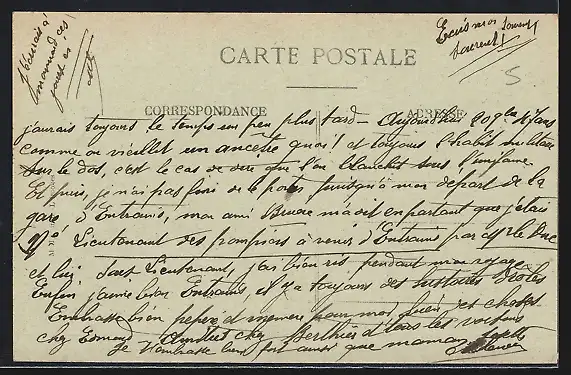 J'écrirais à
ces
jours
Ecris moi souvent
souvent!
5
CARTE POSTALE
CORRESPONDANCE
ADRESSE
j'aurais toujours le temps un peu plus tard — Aujourd'hui 20 ans
comme on vieillit un ancêtre quoi! et toujours l'habit militaire
sur le dos, c'est le cas de dire que l'on blanchit sous
Et puis, je n'ai pas fini de le porter puisqu'à mon départ de la
gare d'Entrains, mon ami m'a dit en partant que j'étais
Lieutenant des pompiers à venir d'Entrains par Mr le Duc
et lui Sous Lieutenant, j'ai bien ris pendant mon voyage
Enfin j'aime bien Entrains, il y a toujours des histoires drôles
Embrasse bien pépère et mémère pour moi, et
chez Edmond chez Berthier et tous les voisins
Je t'embrasse bien fort ainsi que maman